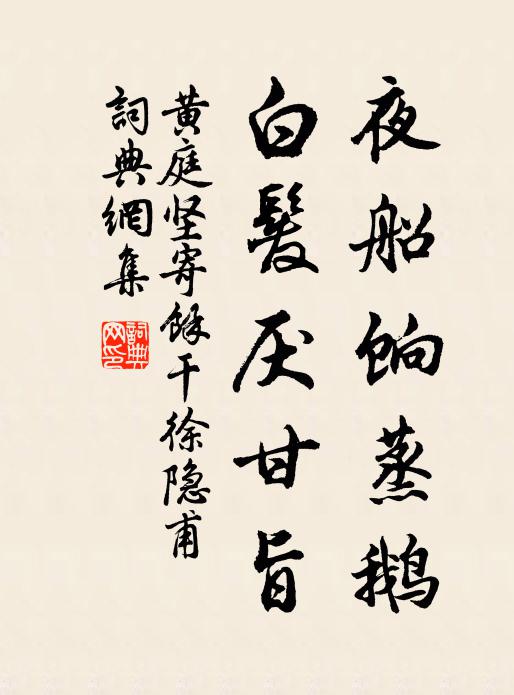 夜船饷蒸鹅
白髮厌甘旨
黄庭坚寄馀干徐隐甫
詞典網集
詞典网印